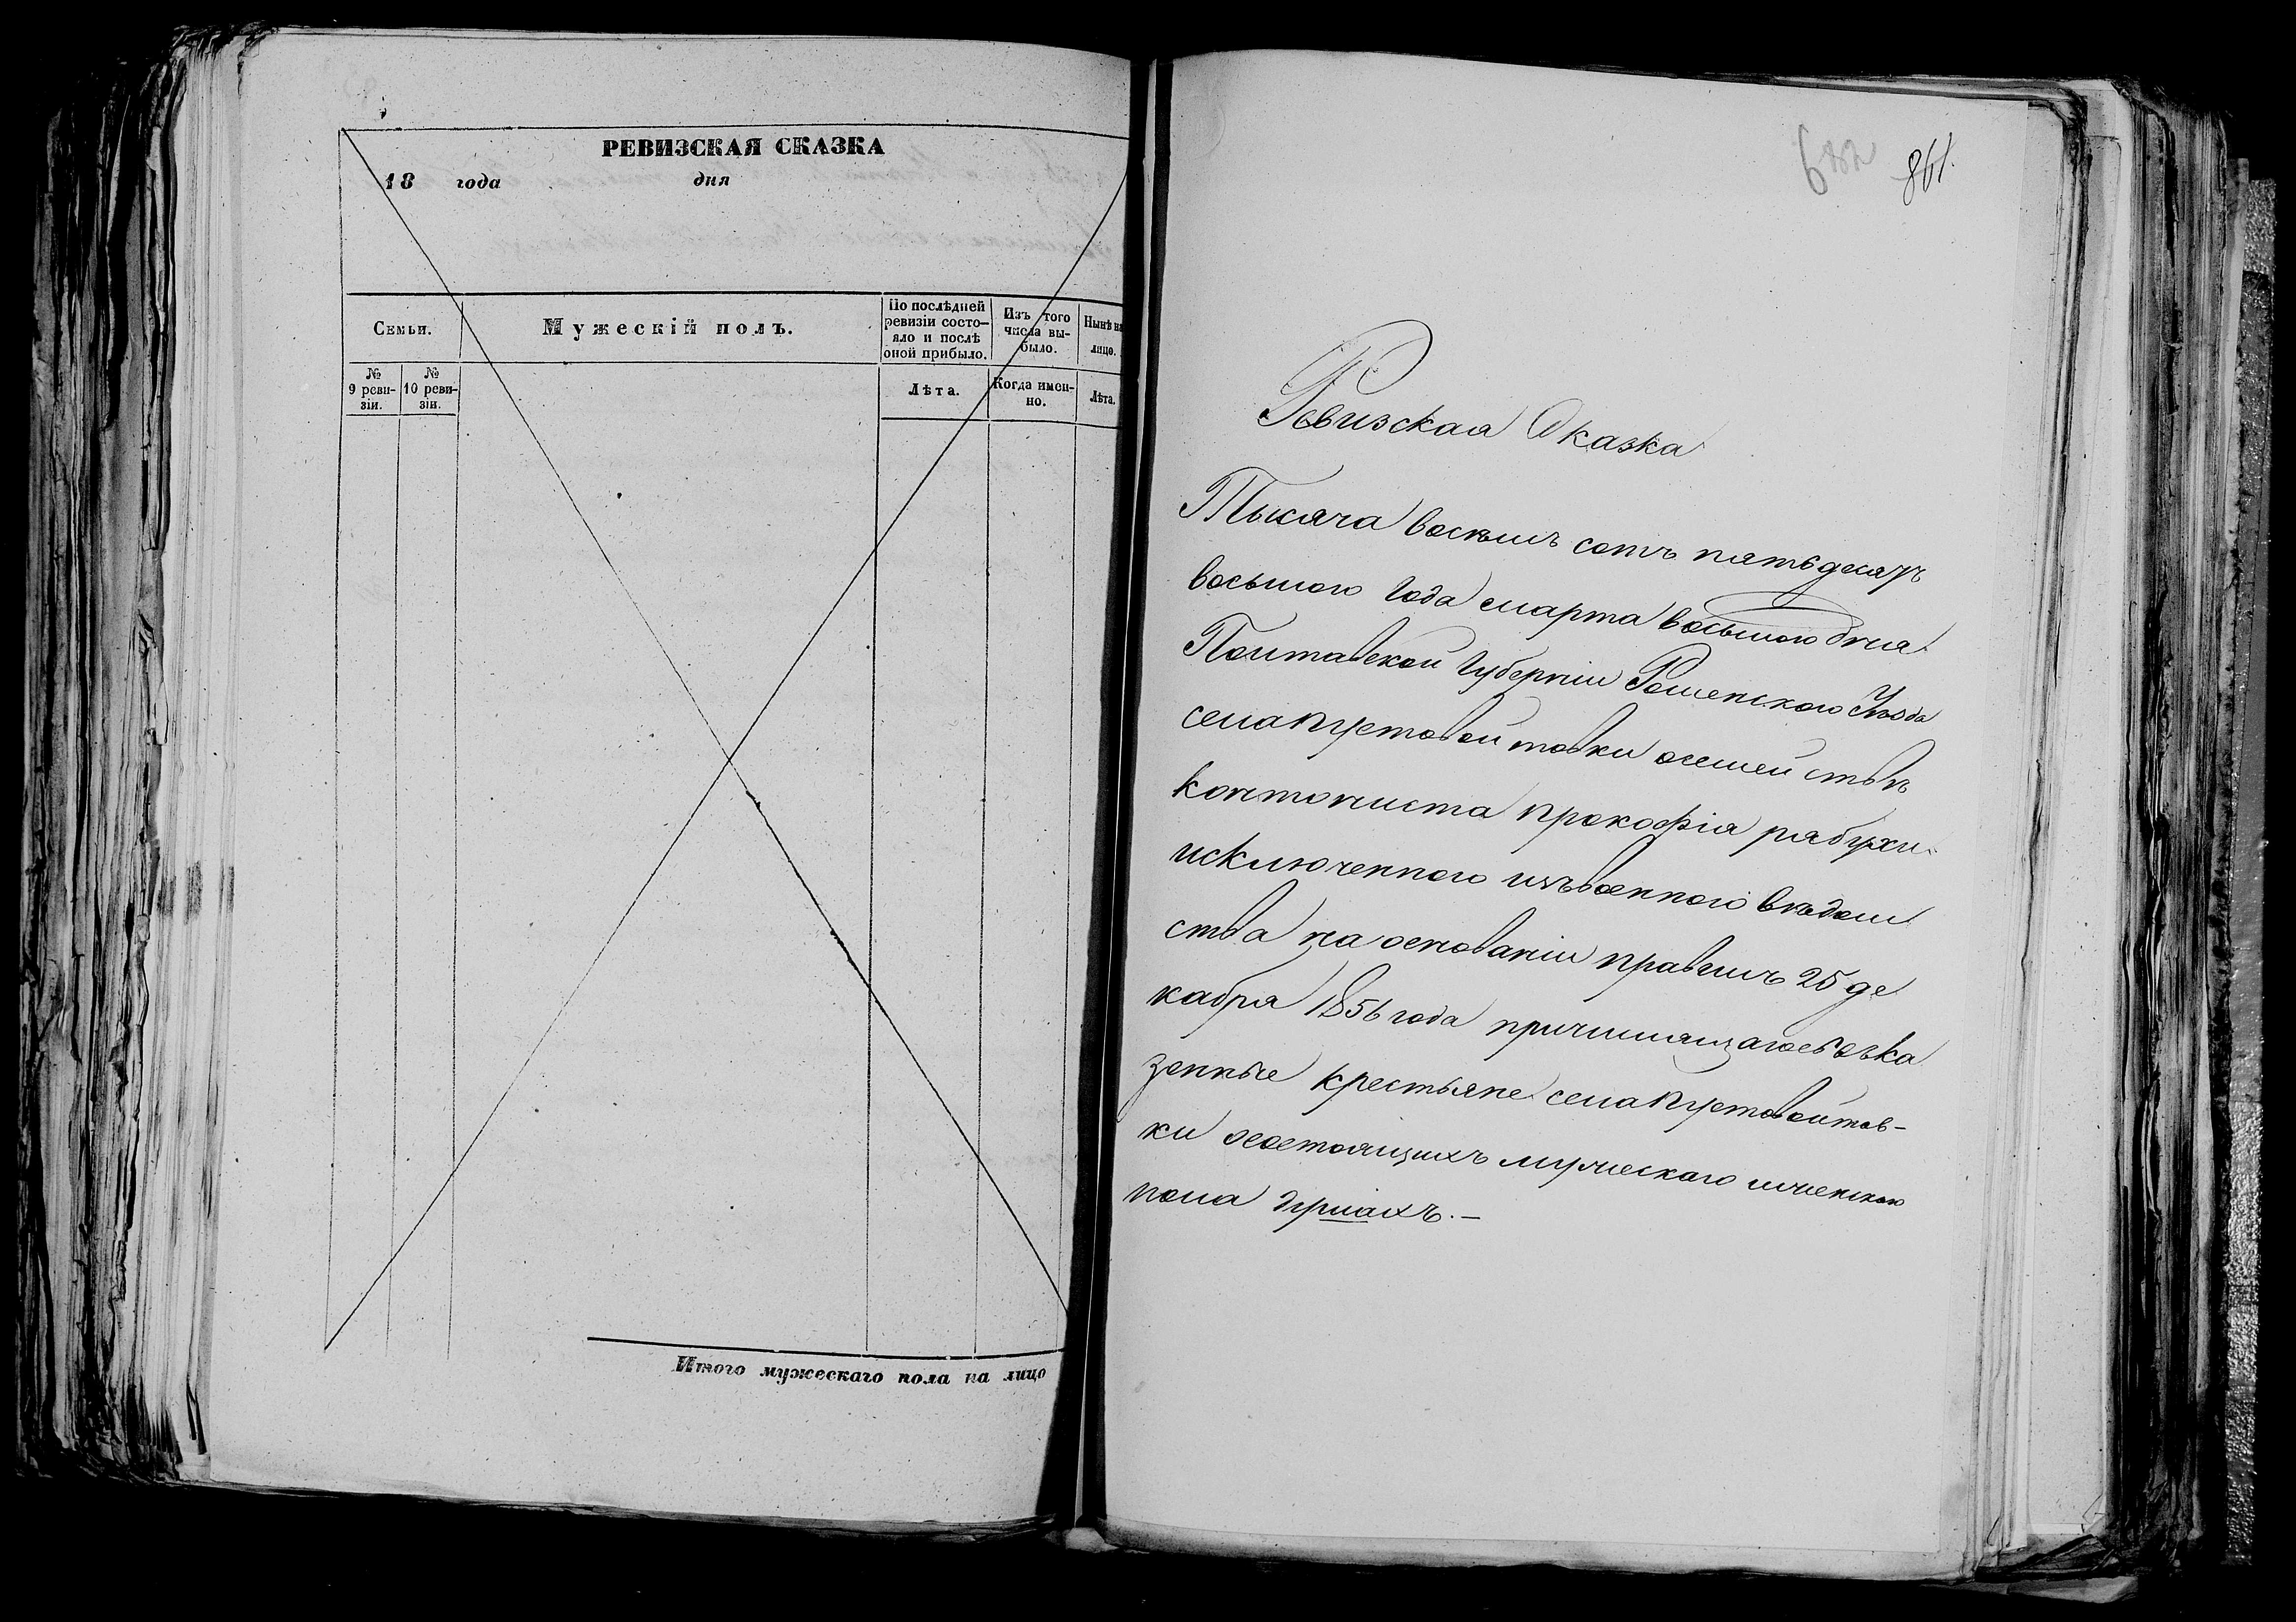 РЕВИЗСКАЯ СКАЗКА
18 года дня
Семьи.
Мужескій полъ.
По послѣдней ревизіи состо-
яло и послѣ
оной прибыло.
Изъ того
числа вы-
было.
Нынѣ на
лицо.
№
9 реви-
зіи.
№
10 реви-
зіи.
Лѣта.
Когда имен-
но.
Лѣта.
Итого мужескаго пола на лицо
861.
Ревизская Сказка
Тысяча восемь сотъ пятьдесятъ
восьмого года марта восьмого дня
Полтавской Губерніи Роменского Уѣзда
села Пустовойтовки осемействѣ
контониста Прокофія рябухи
исключенного изъ военного вѣдом
ства на основаніи правилъ 25 де
кабря 1856 года причислящагось въ ка
зенные крестьяне села Пустовойтов-
ки осостоящихъ мужескаго иженского
пола душахъ.—